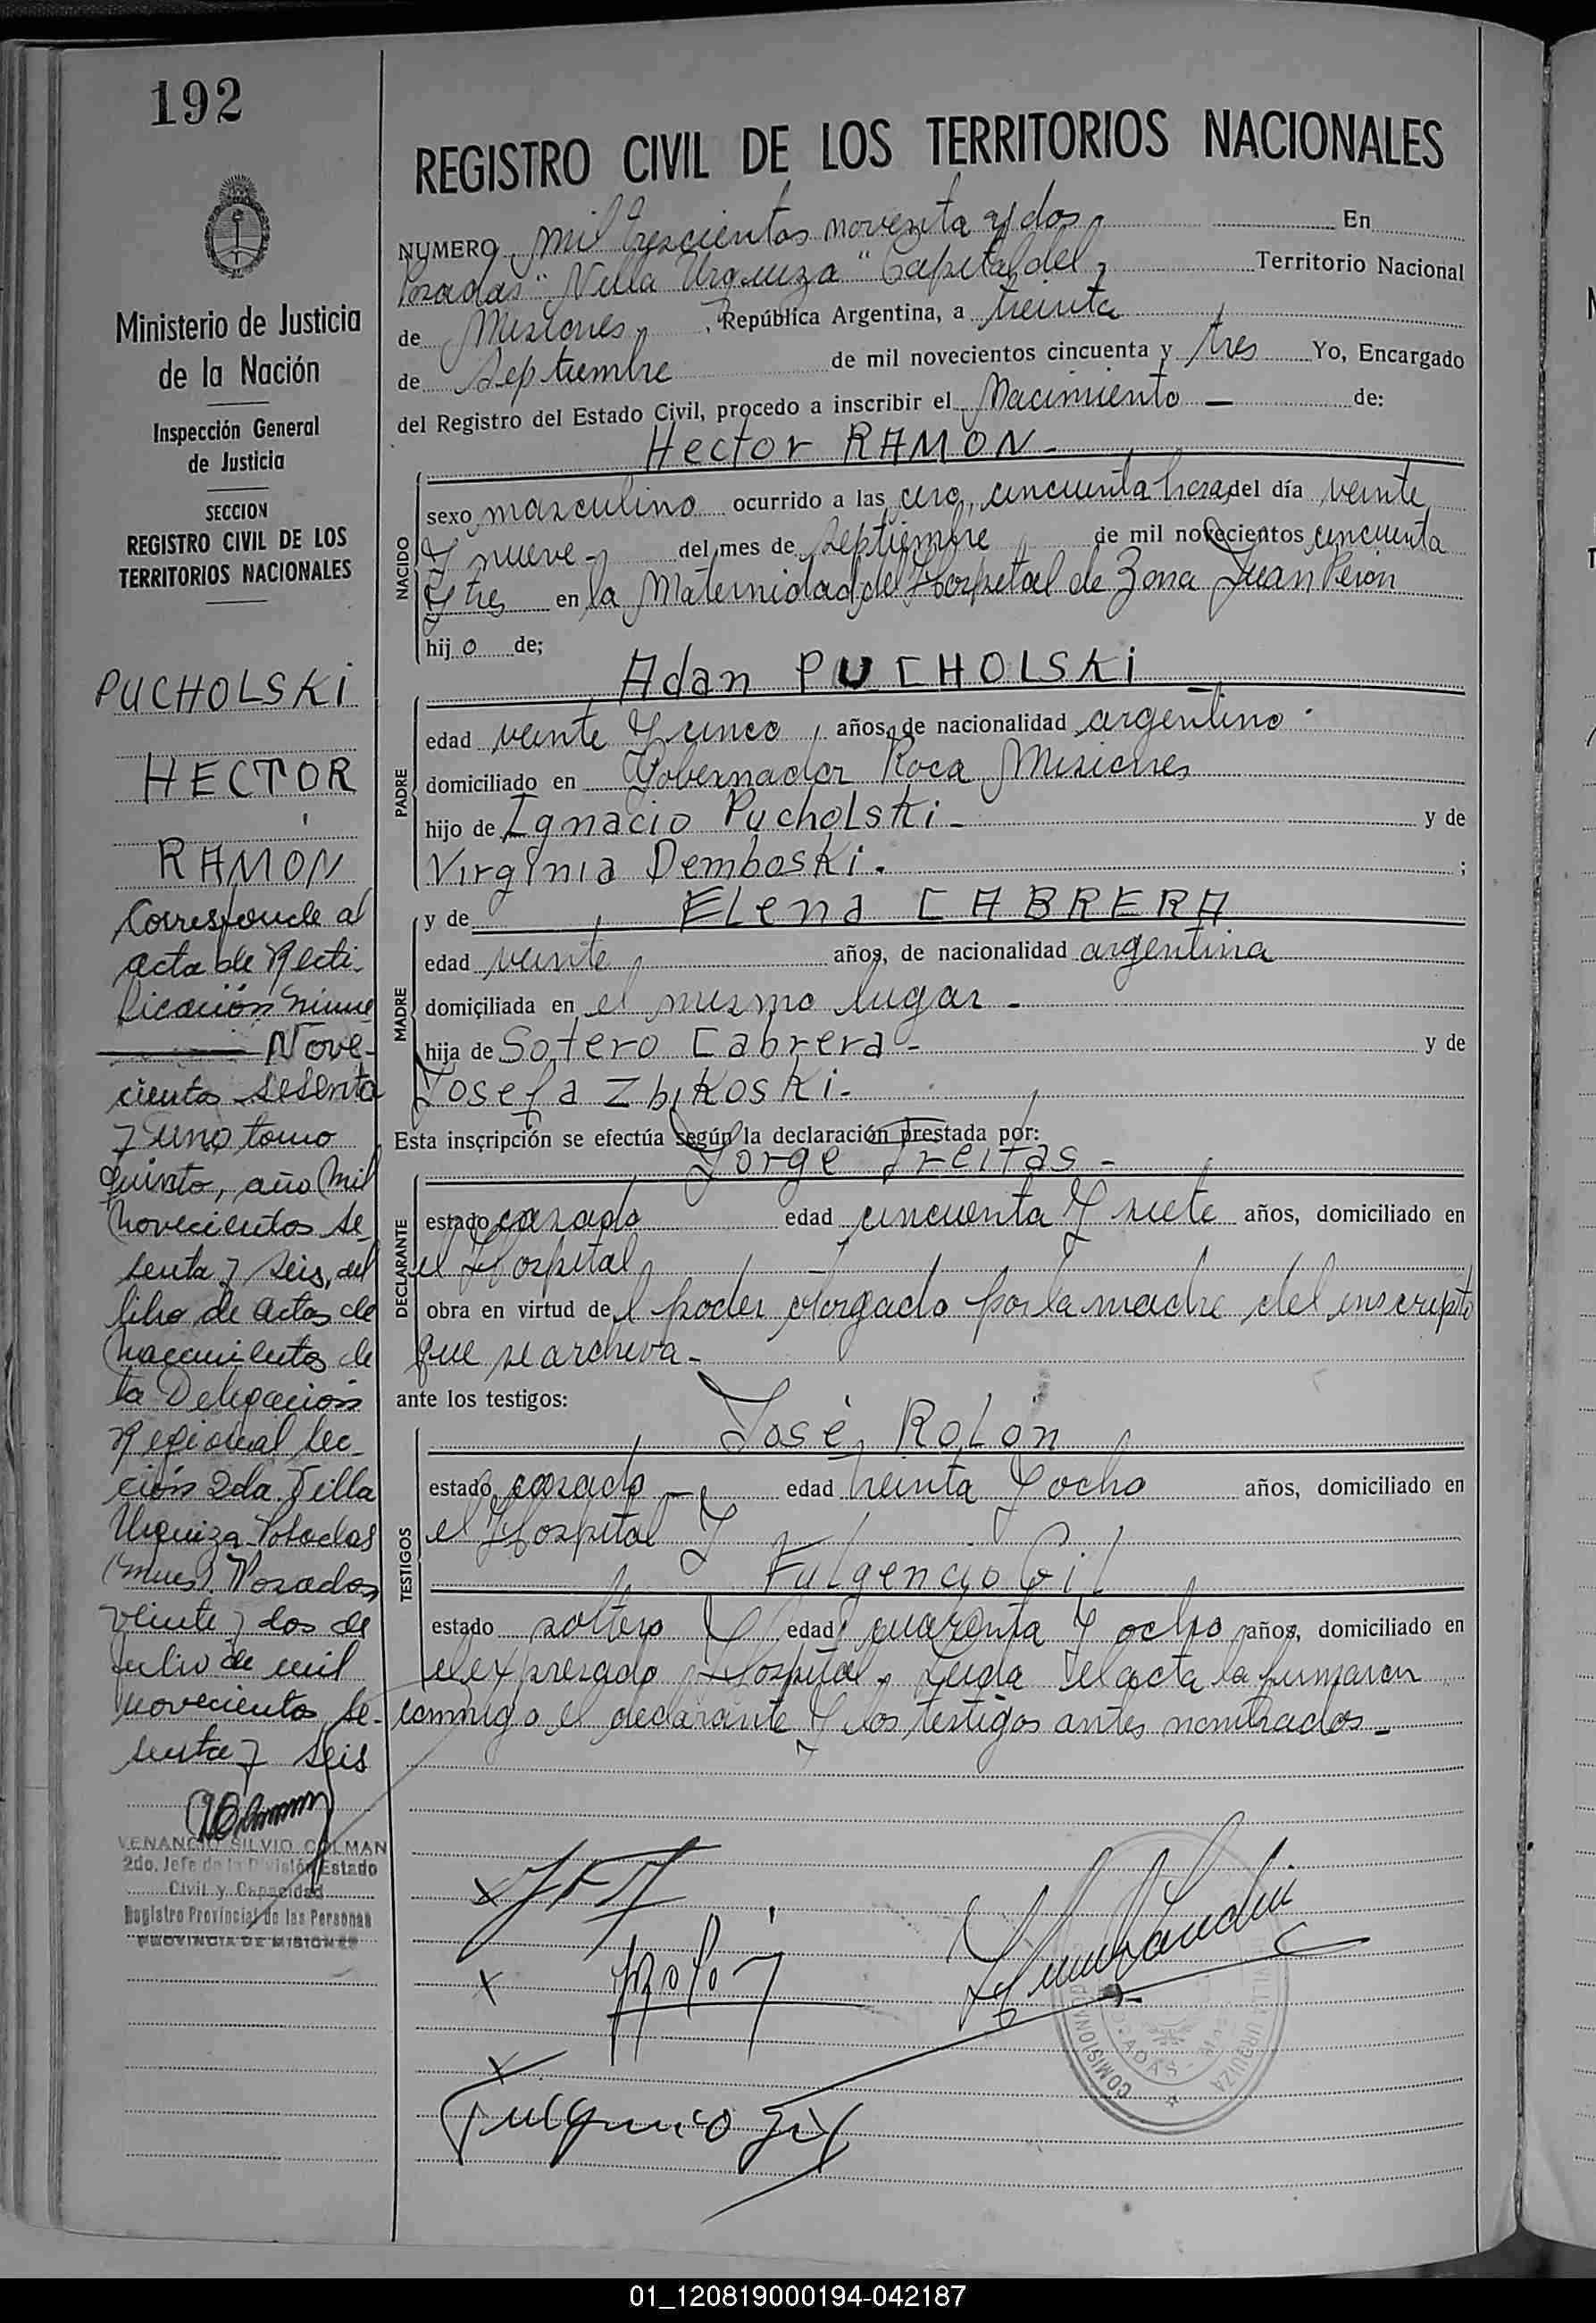 192
Ministerio de Justicia
de la Nación
Inspección General
de Justicia
SECCION
REGISTRO CIVIL DE LOS
TERRITORIOS NACIONALES
PUCHOLSKI
HECTOR
RAMON
Corresponde al
acta de Recti-
ficación
Nove-
cientos sesenta
y uno tomo
quinto, año mil
novecientos se-
senta y seis, del
libro de actas de
nacimientos de
la Delegación
Regional Sec-
ción 2da. Villa
Urquiza Posadas
Posadas
veinte y dos de
julio de mil
novecientos se-
senta y seis
VENANCIO SILVIO COLMAN
2do. Jefe de la División Estado
Civil y Capacidad
Registro Provincial de las Personas
PROVINCIA DE MISIONES
REGISTRO CIVIL DE LOS TERRITORIOS NACIONALES
NUMERO mil trescientos noventa y dos En
Posadas "Villa Urquiza" Capital del Territorio Nacional
de Misiones, República Argentina, a treinta
de Septiembre de mil novecientos cincuenta y tres Yo, Encargado
del Registro del Estado Civil, procedo a inscribir el Nacimiento — de:
Hector RAMON-
NACIDO
sexo masculino ocurrido a las cero, cincuenta horas del día veinte
y nueve- del mes de Septiembre de mil novecientos cincuenta
y tres en la Maternidad del Hospital de Zona Juan Perón
hijo de;
Adan PUCHOLSKI
PADRE
edad veinte y cinco, años, de nacionalidad argentino.
domiciliado en Gobernador Roca, Misiones
hijo de Ignacio PucholsKi- y de
Virginia DembosKi. ;
MADRE
y de Elena CABRERA
edad veinte, años, de nacionalidad argentina
domiciliada en el mismo lugar-
hija de Sotero Cabrera- y de
Josefa ZbiKosKi-
Esta inscripción se efectúa según la declaración prestada por:
Jorge Freitas-
DECLARANTE
estado casado edad cincuenta y siete años, domiciliado en
el Hospital
obra en virtud del poder otorgado por la madre del inscripto
que se archiva-
ante los testigos:
José Rolón
TESTIGOS
estado casado- edad treinta y ocho años, domiciliado en
el Hospital y
Fulgencio Gil
estado soltero edad cuarenta y ocho años, domiciliado en
el expresado Hospital. Leida el acta la firmaron
conmigo el declarante y los testigos antes nombrados-
Rolón
Fulgencio Gil
COMISION
VILLA URQUIZA
01_120819000194-042187